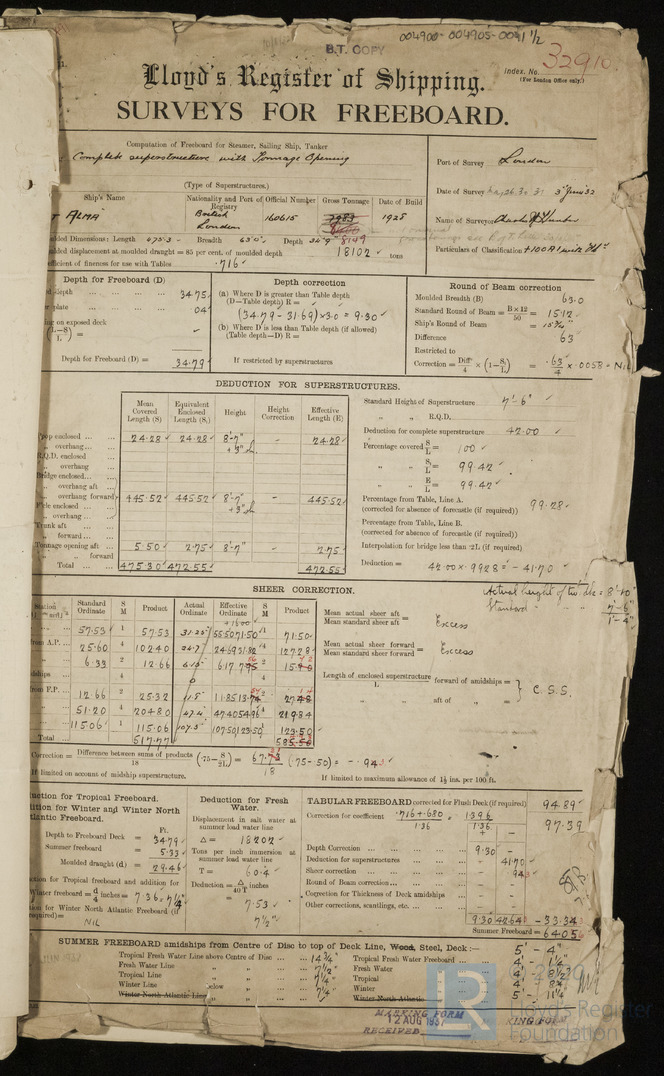 004900-004905-0091 1/2
B.T. COPY
32910
Index. No.
(For London Office only.)
Lloyd's Register of Shipping.
SURVEYS FOR FREEBOARD.
Computation of Freeboard for Steamer, Sailing Ship, Tanker
Complete superstructure with Tonnage Opening
(Type of Superstructures.)
Port of Survey London
Date of Survey 3 June 32
Name of Surveyor
Particulars of Classification +100A1 with
Ship's Name
Nationality and Port of Registry
Official Number
Gross Tonnage
Date of Build
ALMA
British
London
160615
7983
8149
1928
Moulded Dimensions: Length 475.3 Breadth 63.0 Depth 34.9
Moulded displacement at moulded draught = 85 per cent. of moulded depth 18102 tons
Coefficient of fineness for use with Tables .716
Depth for Freeboard (D)
34.75
04
ing on exposed deck
Depth for Freeboard (D) = 34.79
Depth correction
(a) Where D is greater than Table depth
(D—Table depth) R =
(34.79 - 31.69) × 3.0 = 9.30
(b) Where D is less than Table depth (if allowed)
(Table depth—D) R =
If restricted by superstructures
Round of Beam correction
Moulded Breadth (B) 63.0
Standard Round of Beam = B×12/50 = 15.12
Ship's Round of Beam = 15 3/4"
Difference 63
Restricted to
Correction = Diff/4 × (1—S/L) = .63/4 × .0058 = Nil
DEDUCTION FOR SUPERSTRUCTURES.
Mean Covered Length (S)
Equivalent Enclosed Length (S₁)
Height
Height Correction
Effective Length (E)
Poop enclosed 24.28 24.28 8'-7" - 24.28
„ overhang
R.Q.D. enclosed
„ overhang
Bridge enclosed
„ overhang aft
„ overhang forward 445.52 445.52 8'-7" - 445.52
F'cle enclosed
„ overhang
Trunk aft
„ forward
Tonnage opening aft 5.50 2.75 8'-7" 2.75
„ forward
Total 475.30 472.55 472.55
Standard Height of Superstructure 7'-6"
„ „ R.Q.D.
Deduction for complete superstructure 42.00
Percentage covered S/L = 100
„ S₁/L = 99.42
„ E/L = 99.42
Percentage from Table, Line A.
(corrected for absence of forecastle (if required)) 99.28
Percentage from Table, Line B.
(corrected for absence of forecastle (if required))
Interpolation for bridge less than ·2L (if required)
Deduction = 42.00 × .9928 = - 41.70
Actual height of = 8'-10"
Standard „ „ 7'-6"
1'-4"
SHEER CORRECTION.
Station
Standard Ordinate
S M
Product
Actual Ordinate
Effective Ordinate
S M
Product
57.53 1 57.53 71.50 1 71.50
from A.P. 25.60 4 102.40 31.82 4 127.28
6.33 2 12.66 2
4 0 4
from F.P. 12.66 2 25.32 11.8 2
51.20 4 204.80 47.4 54.96 4 219.84
115.06 1 115.06 107.5 123.50 1 123.50
Total 517.77
Mean actual sheer aft
Mean standard sheer aft = Excess
Mean actual sheer forward
Mean standard sheer forward = Excess
Length of enclosed superstructure forward of amidships =
L
„ „ aft of „ =
C.S.S.
Correction = Difference between sums of products/18 (·75—S/2L) = /18 (.75-.50) = - .94
If limited on accounts of midship superstructure.
If limited to maximum allowance of 1½ ins. per 100 ft.
Deduction for Tropical Freeboard.
Addition for Winter and Winter North Atlantic Freeboard.
Ft.
Depth to Freeboard Deck = 34.79
Summer freeboard = 5.33
Moulded draught (d) = 29.46
Deduction for Tropical freeboard and addition for
Winter freeboard = d/4 inches = 7.36 = 7¼"
Addition for Winter North Atlantic Freeboard (if required) =
NIL
Deduction for Fresh Water.
Displacement in salt water at summer load water line
Δ = 18202
Tons per inch immersion at summer load water line
T = 60.4
Deduction = Δ/40 T inches
= 7.53
7½"
TABULAR FREEBOARD corrected for Flush Deck (if required) 94.89
Correction for coefficient .716+.680/1.36 = 1.396/1.36 97.39
+ -
Depth Correction 9.30 -
Deduction for superstructures - 41.70
Sheer correction - .94
Round of Beam correction - -
Correction for Thickness of Deck amidships - -
Other corrections, scantlings, etc. - -
9.30 42.64 - 33.34
Summer Freeboard = 64.05
SUMMER FREEBOARD amidships from Centre of Disc to top of Deck Line, Wood, Steel, Deck :— 5' - 4"
Tropical Fresh Water Line above Centre of Disc 14¾" Tropical Fresh Water Freeboard 4' - 1¼"
Fresh Water Line „ „ 7½" Fresh Water „ 4' - 8½"
Tropical Line „ „ 7¼" Tropical „ 4' - 8¾"
Winter Line below „ 7¼" Winter „ 5 - 11¼"
Winter North Atlantic Line „ „ Winter North Atlantic „
MARKING FORM
12 AUG 1937
RECEIVED
LR
Lloyd's Register
Foundation